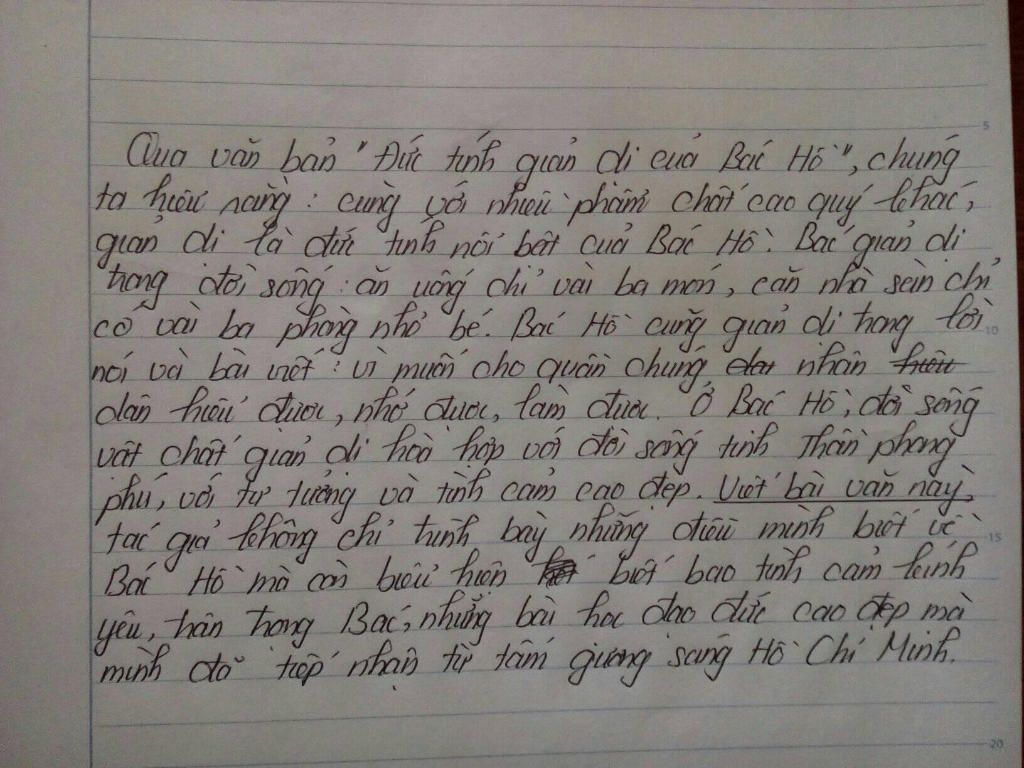 Qua văn bản "Đức tính giản dị của Bác Hồ", chúng
ta hiểu rằng: cùng với nhiều phẩm chất cao quý khác,
giản dị là đức tính nổi bật của Bác Hồ. Bác giản dị
trong đời sống: ăn uống chỉ vài ba món, căn nhà sàn chỉ
có vài ba phòng nhỏ bé. Bác Hồ cũng giản dị trong lời
nói và bài viết: vì muốn cho quần chúng nhân
dân hiểu được, nhớ được, làm được. Ở Bác Hồ, đời sống
vật chất giản dị hoà hợp với đời sống tinh thần phong
phú, với tư tưởng và tình cảm cao đẹp. Viết bài văn này,
tác giả không chỉ trình bày những điều mình biết về
Bác Hồ mà còn biểu hiện biết bao tình cảm kính
yêu, trân trọng Bác, những bài học đạo đức cao đẹp mà
mình đã tiếp nhận từ tấm gương sáng Hồ Chí Minh.
5
10
15
20